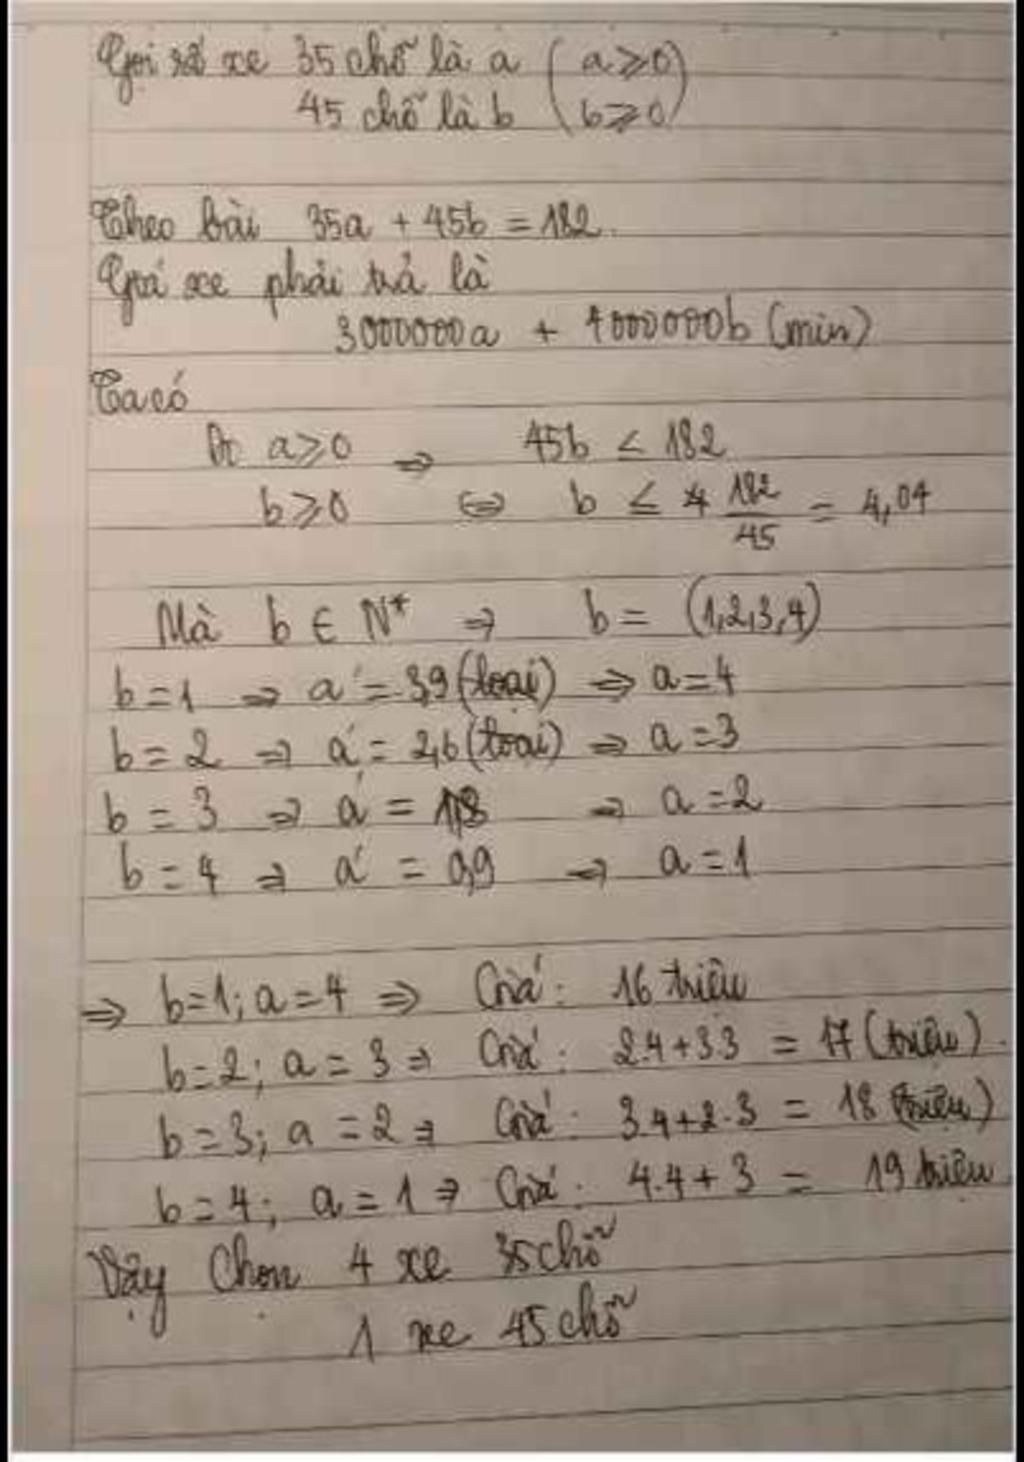 Gọi số xe 35 chỗ là a ( a ⩾ 0 )
45 chỗ là b ( b ⩾ 0 )
Theo bài 35a + 45b = 182.
Giá xe phải trả là
3000000a + 4000000b (min)
Ta có
Do a ⩾ 0 ⇒ 45b ≤ 182
b ⩾ 0 ⇔ b ≤ 182/45 = 4,04
Mà b ∈ N* ⇒ b = (1,2,3,4)
b = 1 ⇒ a' = 3,9 (loại) ⇒ a = 4
b = 2 ⇒ a' = 2,6 (loại) ⇒ a = 3
b = 3 ⇒ a' = 1,8 ⇒ a = 2
b = 4 ⇒ a' = 0,9 ⇒ a = 1
⇒ b=1; a = 4 ⇒ Giá: 16 triệu
b=2; a = 3 ⇒ Giá: 2.4+3.3 = 17 (triệu).
b=3; a = 2 ⇒ Giá: 3.4+2.3 = 18 (triệu)
b=4; a = 1 ⇒ Giá: 4.4+3 = 19 triệu
Vậy Chọn 4 xe 35 chỗ
1 xe 45 chỗ